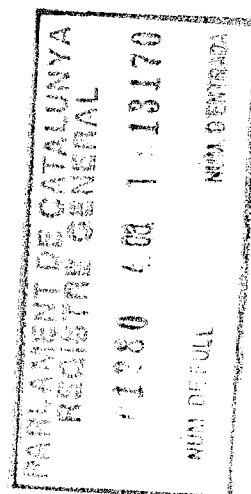 PARLAMENT DE CATALUNYA
REGISTRE GENERAL
1 18170
NUM. DE FULL
NUM. D'ENTRADA